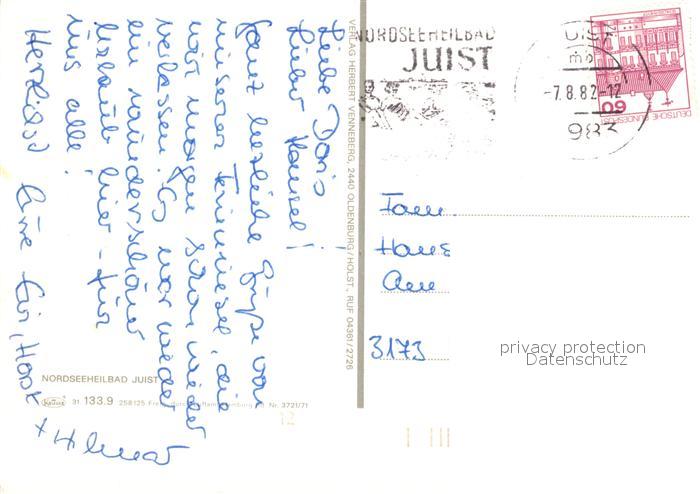 Liebe Doris
Lieber Hansel!
Ganz herzliche Grüße von
unserer Ferieninsel, die
wir morgen schon wieder
verlassen. Es war wieder
ein wunderschöner
Urlaub hier - für
uns alle!
Herzlichst Eure
+ Hilmar
VERLAG HERBERT VENNEBERG, 2440 OLDENBURG/HOLST., RUF 04361/2726
NORDSEEHEILBAD JUIST
31 133.9 258125
Nr. 3721/71
12
NORDSEEHEILBAD
JUIST
JUIST
-7.8.82-12
983
60
DEUTSCHE BUNDESPOST
Fam.
Hans
Am
3173
privacy protection
Datenschutz